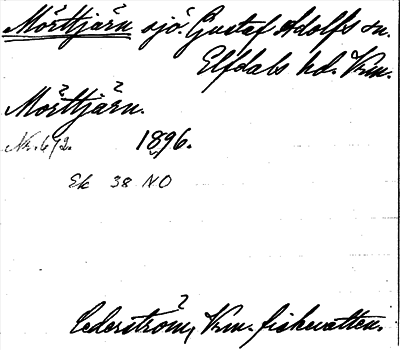 Mörttjärn sjö. Gustaf Adolfs sn.
Elfdals hd. Vrm.
Mörttjärn.
Nr. 672. 1896.
Ek 38 NO
Cederström, Vrm. fiskevatten.